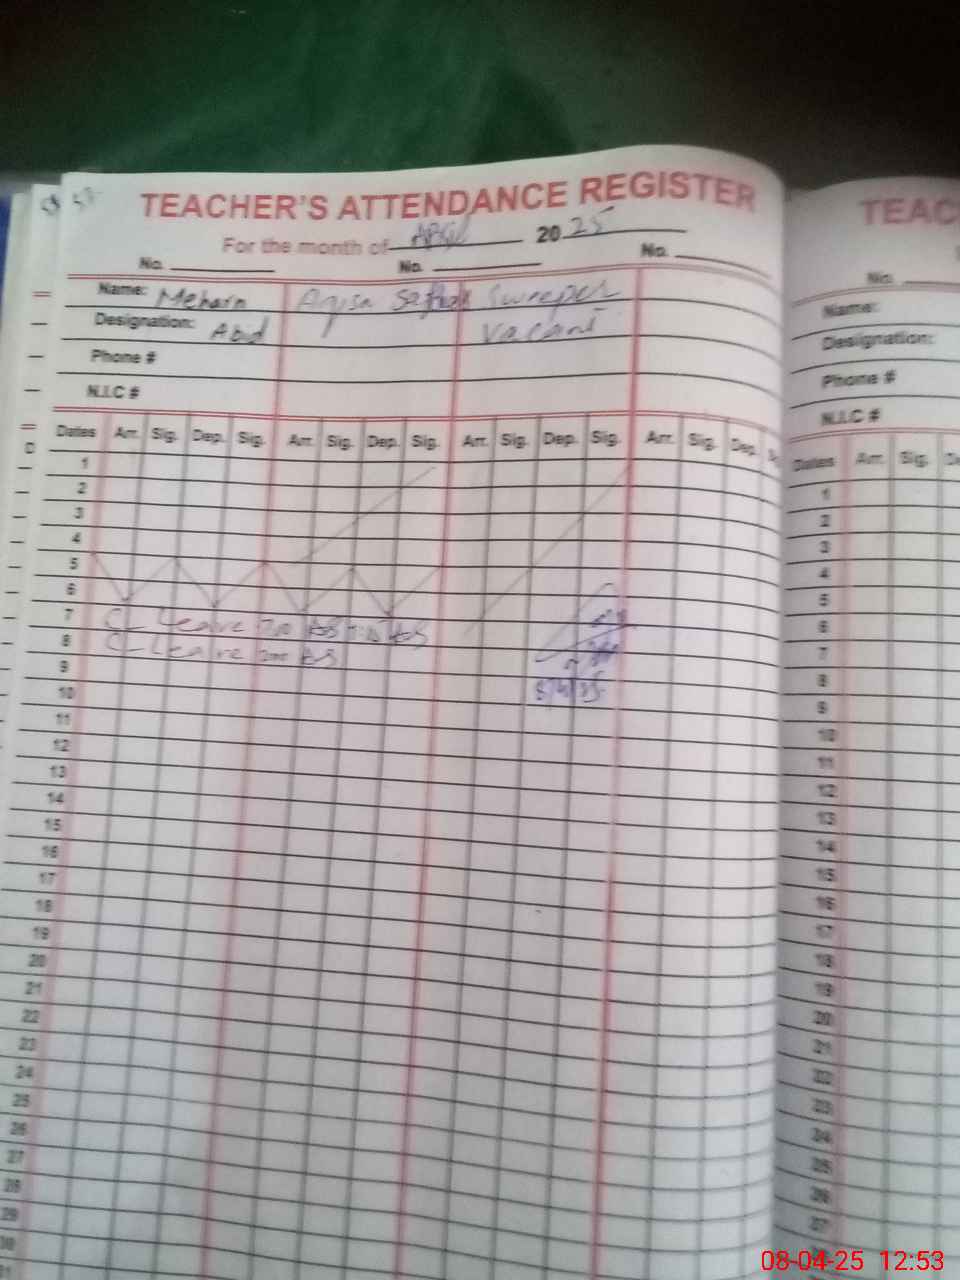 TEACHER'S ATTENDANCE REGISTER
For the month of 20 25
No. No. No.
Name: Meharn Sweeper
Designation: Abid Vacant
Phone #
N.I.C #
Dates Arr. Sig. Dep. Sig. Arr. Sig. Dep. Sig. Arr. Sig. Dep. Sig. Arr. Sig. Dep.
1
2
3
4
5
6
7 CL Leave
8 CL Leave
9
10
11
12
13
14
15
16
17
18
19
20
21
22
23
24
25
26
27
28
29
30
31
TEAC
No.
Name:
Designation:
Phone #
N.I.C #
Dates Arr. Sig.
1
2
3
4
5
6
7
8
9
10
11
12
13
14
15
16
17
18
19
20
21
22
23
24
25
26
27
08-04-25 12:53